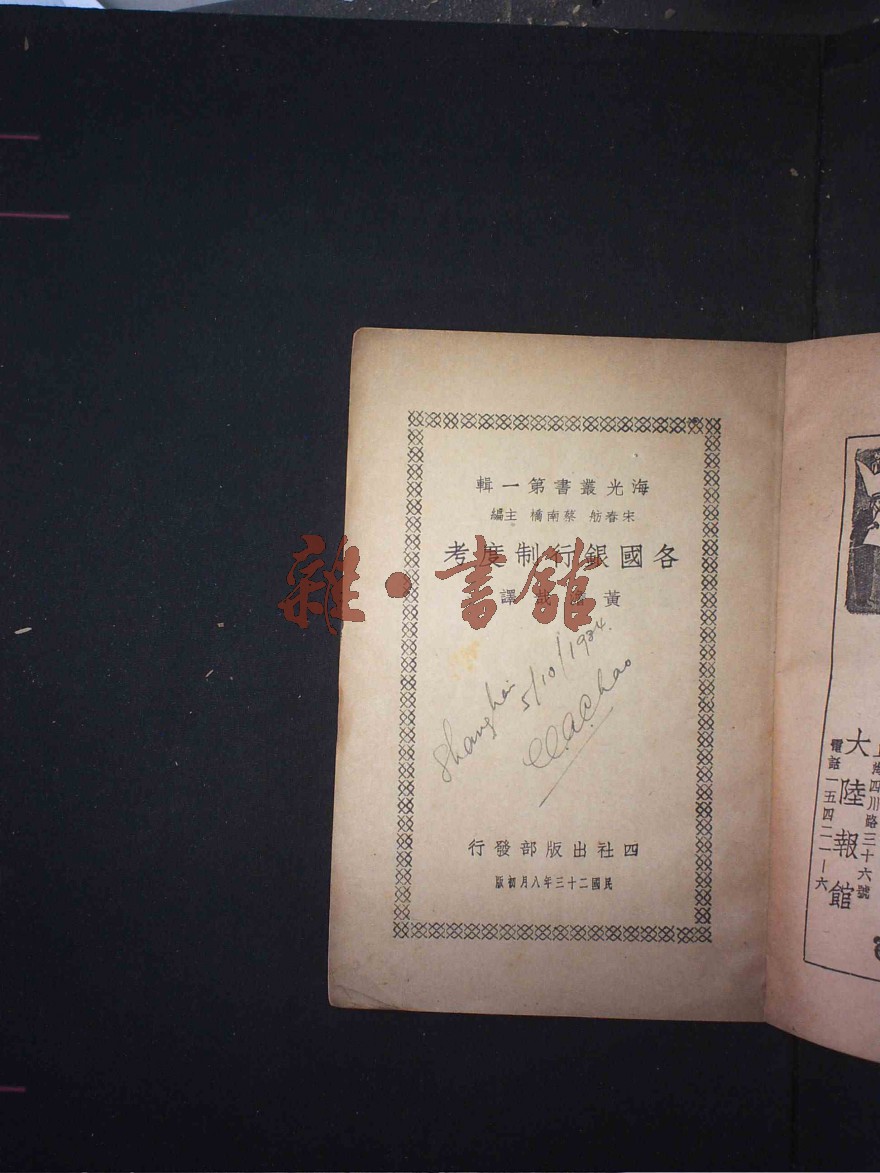 海光叢書第一輯
宋春舫 蔡南橋 主編
各國銀行制度考
黃 譯
雜·書館
Shanghai 5/10/1934.
Chao
四社出版部發行
民國二十三年八月初版
四川路三十六號
大陸報館
電話一五四二二一六